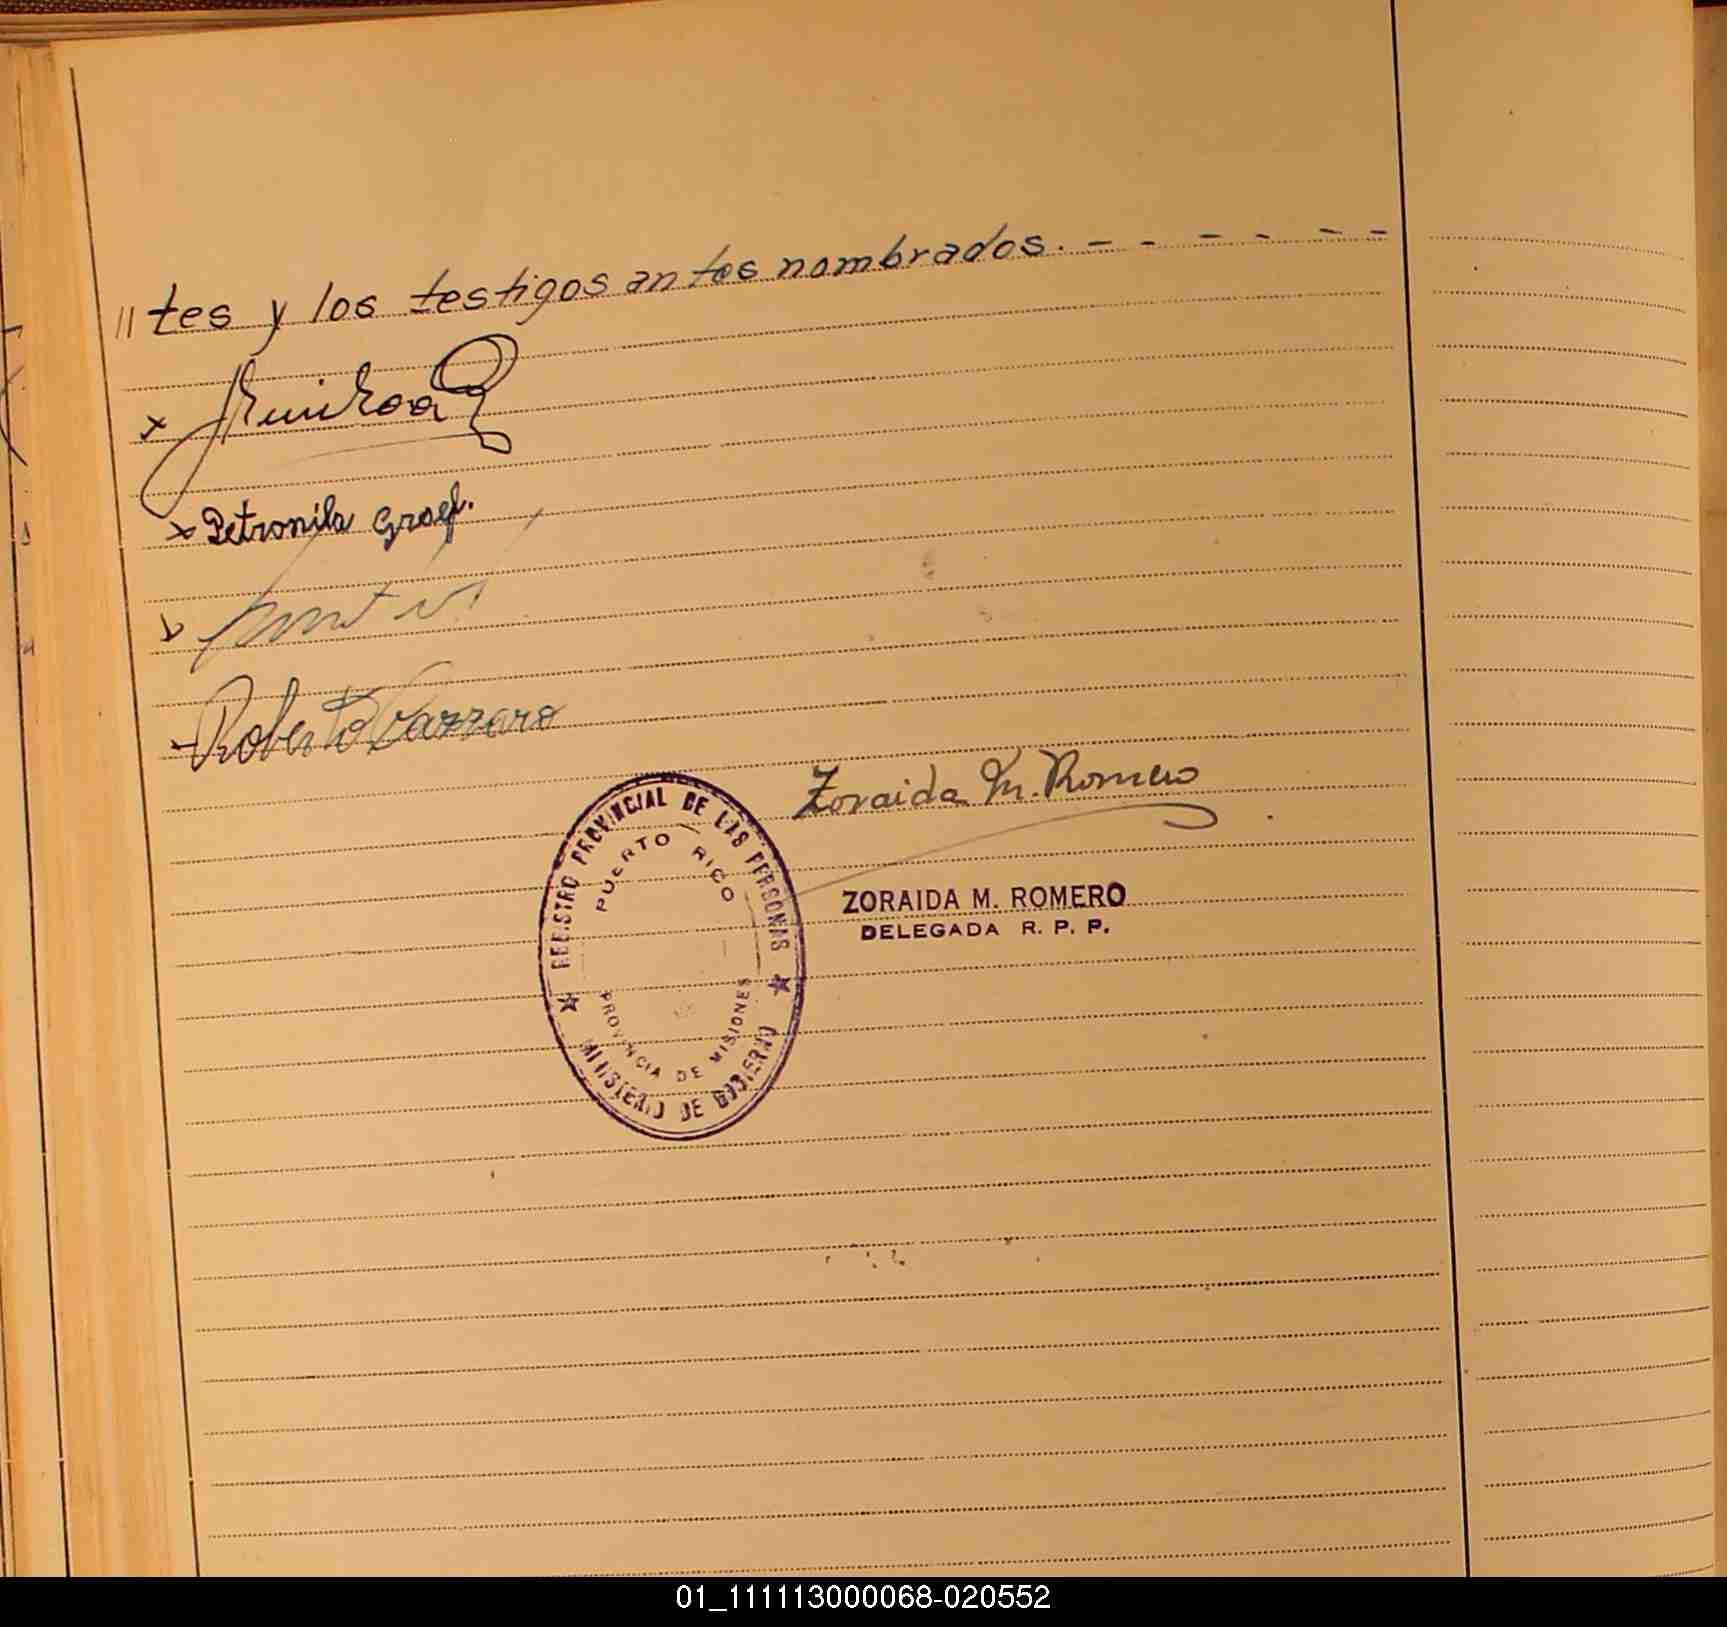 "tes y los testigos antes nombrados. - - - - - - -
x
x Petronila Graef.
Roberto
Zoraida M. Romero
REGISTRO PROVINCIAL DE LAS PERSONAS
PUERTO RICO
ZORAIDA M. ROMERO
DELEGADA R. P. P.
PROVINCIA DE MISIONES
★ MINISTERIO DE GOBIERNO ★
01_111113000068-020552